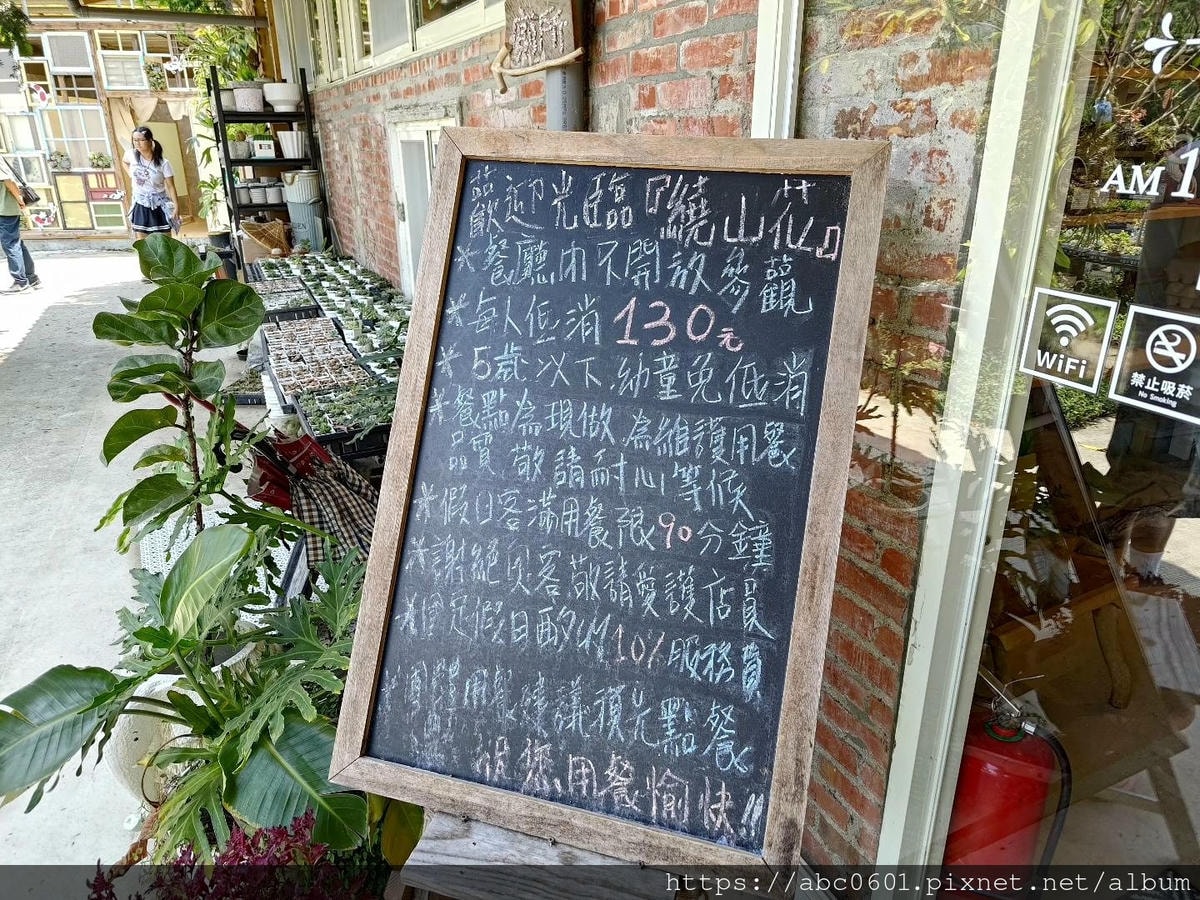 歡迎光臨『繞山花』
*餐廳內不開放參觀
*每人低消130元
*5歲以下,幼童免低消
*餐點為現做,為維護用餐
品質,敬請耐心等候
*假日客滿用餐限90分鐘
*謝絕奧客敬請愛護店員
*固定假日酌收10%服務費
*團體用餐建議預先點餐
祝您用餐愉快!!
AM 1
WiFi
禁止吸菸
No Smoking
https://abc0601.pixnet.net/album